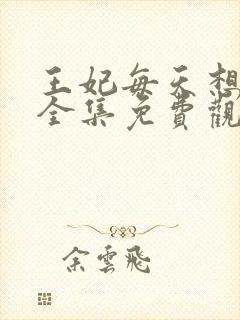 王妃每天想
全集免費觀
余雲飛